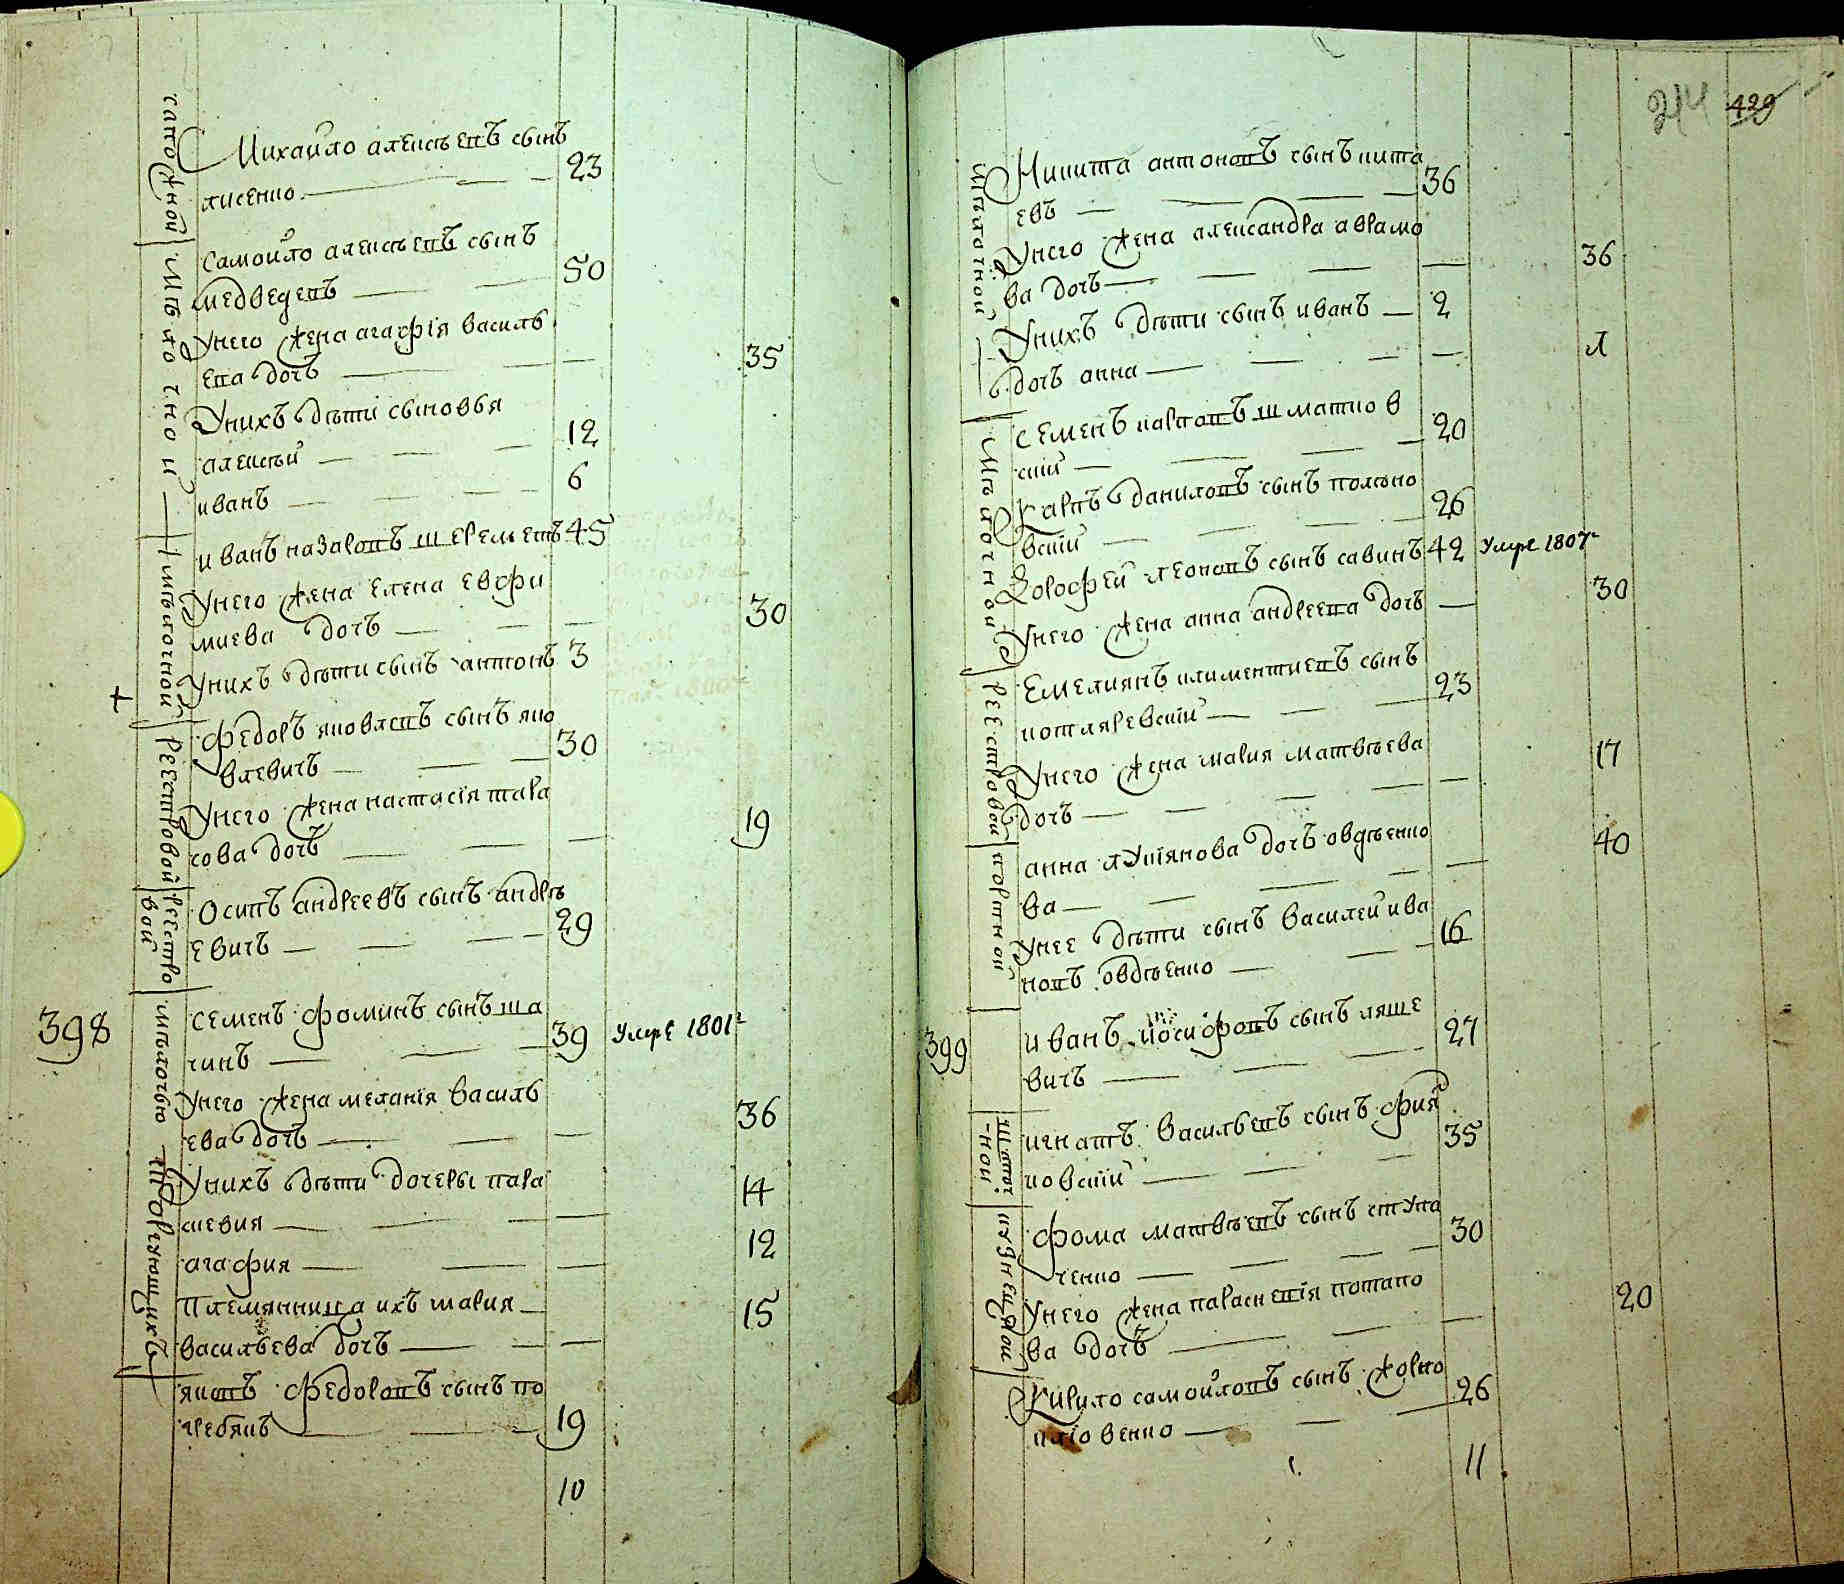 сапожной
Михайло алексѣевъ сынъ
лисенко 23
Мѣлочной
Самойло алексѣевъ сынъ
медведевъ 50
Унего жена агафiя василь
ева дочь 35
Унихъ дѣти сыновья
алексѣй 12
иванъ 6
мѣлочной
иванъ назаровъ шереметъ 45
Унего жена елена евфи
миева дочь 30
Унихъ дѣти сынъ антонъ 3
+
Реестровой
Федоръ яковлевъ сынъ яко
влевичъ 30
Унего жена настасiя тара
сова дочь 19
реестро
вой
Осипъ андреевъ сынъ андрѣ
евичъ 29
398
мѣлочью торгующихъ
семенъ фоминъ сынъ ша
чинъ 39 умре 1801г
Унего жена меланiя василь
ева дочь 36
Унихъ дѣти дочеры пара
скевия 14
агафия 12
племянница ихъ мария
васильева дочь 15
якимъ федоровъ сынъ по
гребякъ 19
10
244 429
Мѣлочной
Никита антоновъ сынъ кита
евъ 36
Унего жена александра аврамо
ва дочь 36
Унихъ дѣти сынъ иванъ 2
дочь анна 1
Мѣлочной
семенъ карповъ шматков
скiй 20
Карпъ даниловъ сынъ полоно
вскiй 26
Дорофей леоновъ сынъ савинъ 42 умре 1807г
Унего жена анна андреева дочь 30
Реестровой
Емелиянъ климентиевъ сынъ
котляревскiй 23
Унего жена мария матвѣева
дочь 17
портной
анна лукiянова дочь овдѣенко
ва 40
Унее дѣти сынъ василей ива
новъ овдѣенко 16
399
иванъ иосифовъ сынъ ляше
вичъ 27
шапоч
ной
игнатъ васильевъ сынъ фия
ковскiй 35
кузнецкой
фома матвѣевъ сынъ ступа
ченко 30
Унего жена параскевiя потапо
ва дочь 20
Кирило самойловъ сынъ жолно
кловенко 26
11